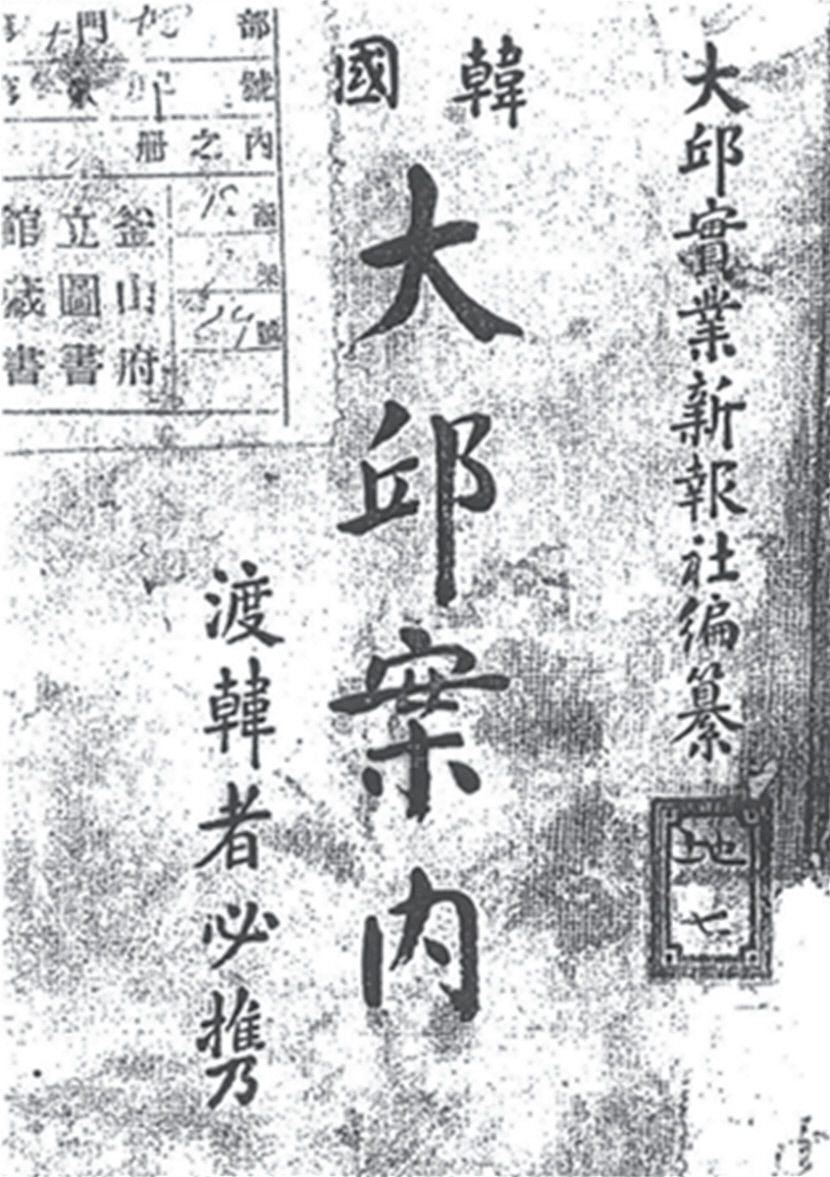 大邱實業新報社編纂
韓國
大邱案内
渡韓者必携
地七
部 門
號
内之册
函
架
號
釜山府
立圖書
館藏書